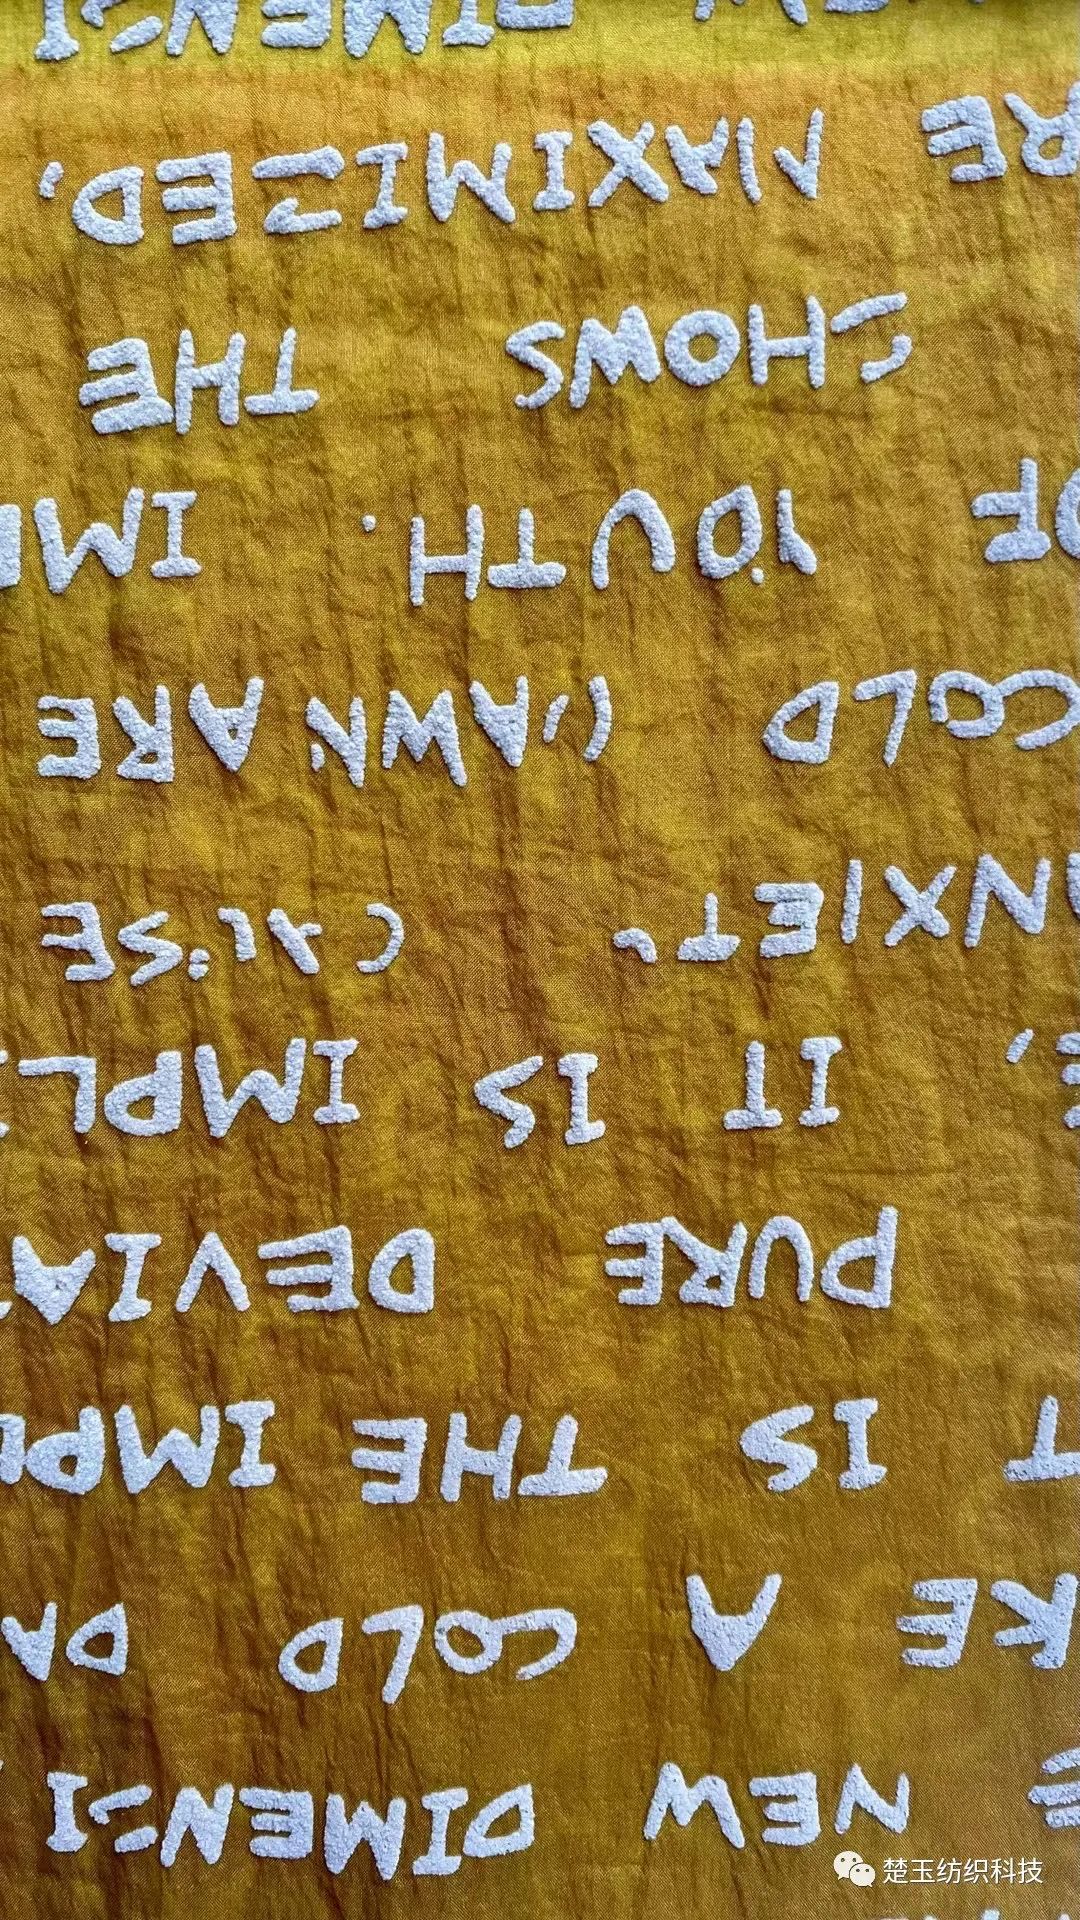 E NEW DIMENSI
KE A COLD DA
T IS THE IMP
PURE DEVIA
E, IT IS IMPL
NXIET CAUSE
COLD DAWN ARE
OF YOUTH. IM
SHOWS THE
RE MAXIMIZED,
DIMENSI
楚玉纺织科技